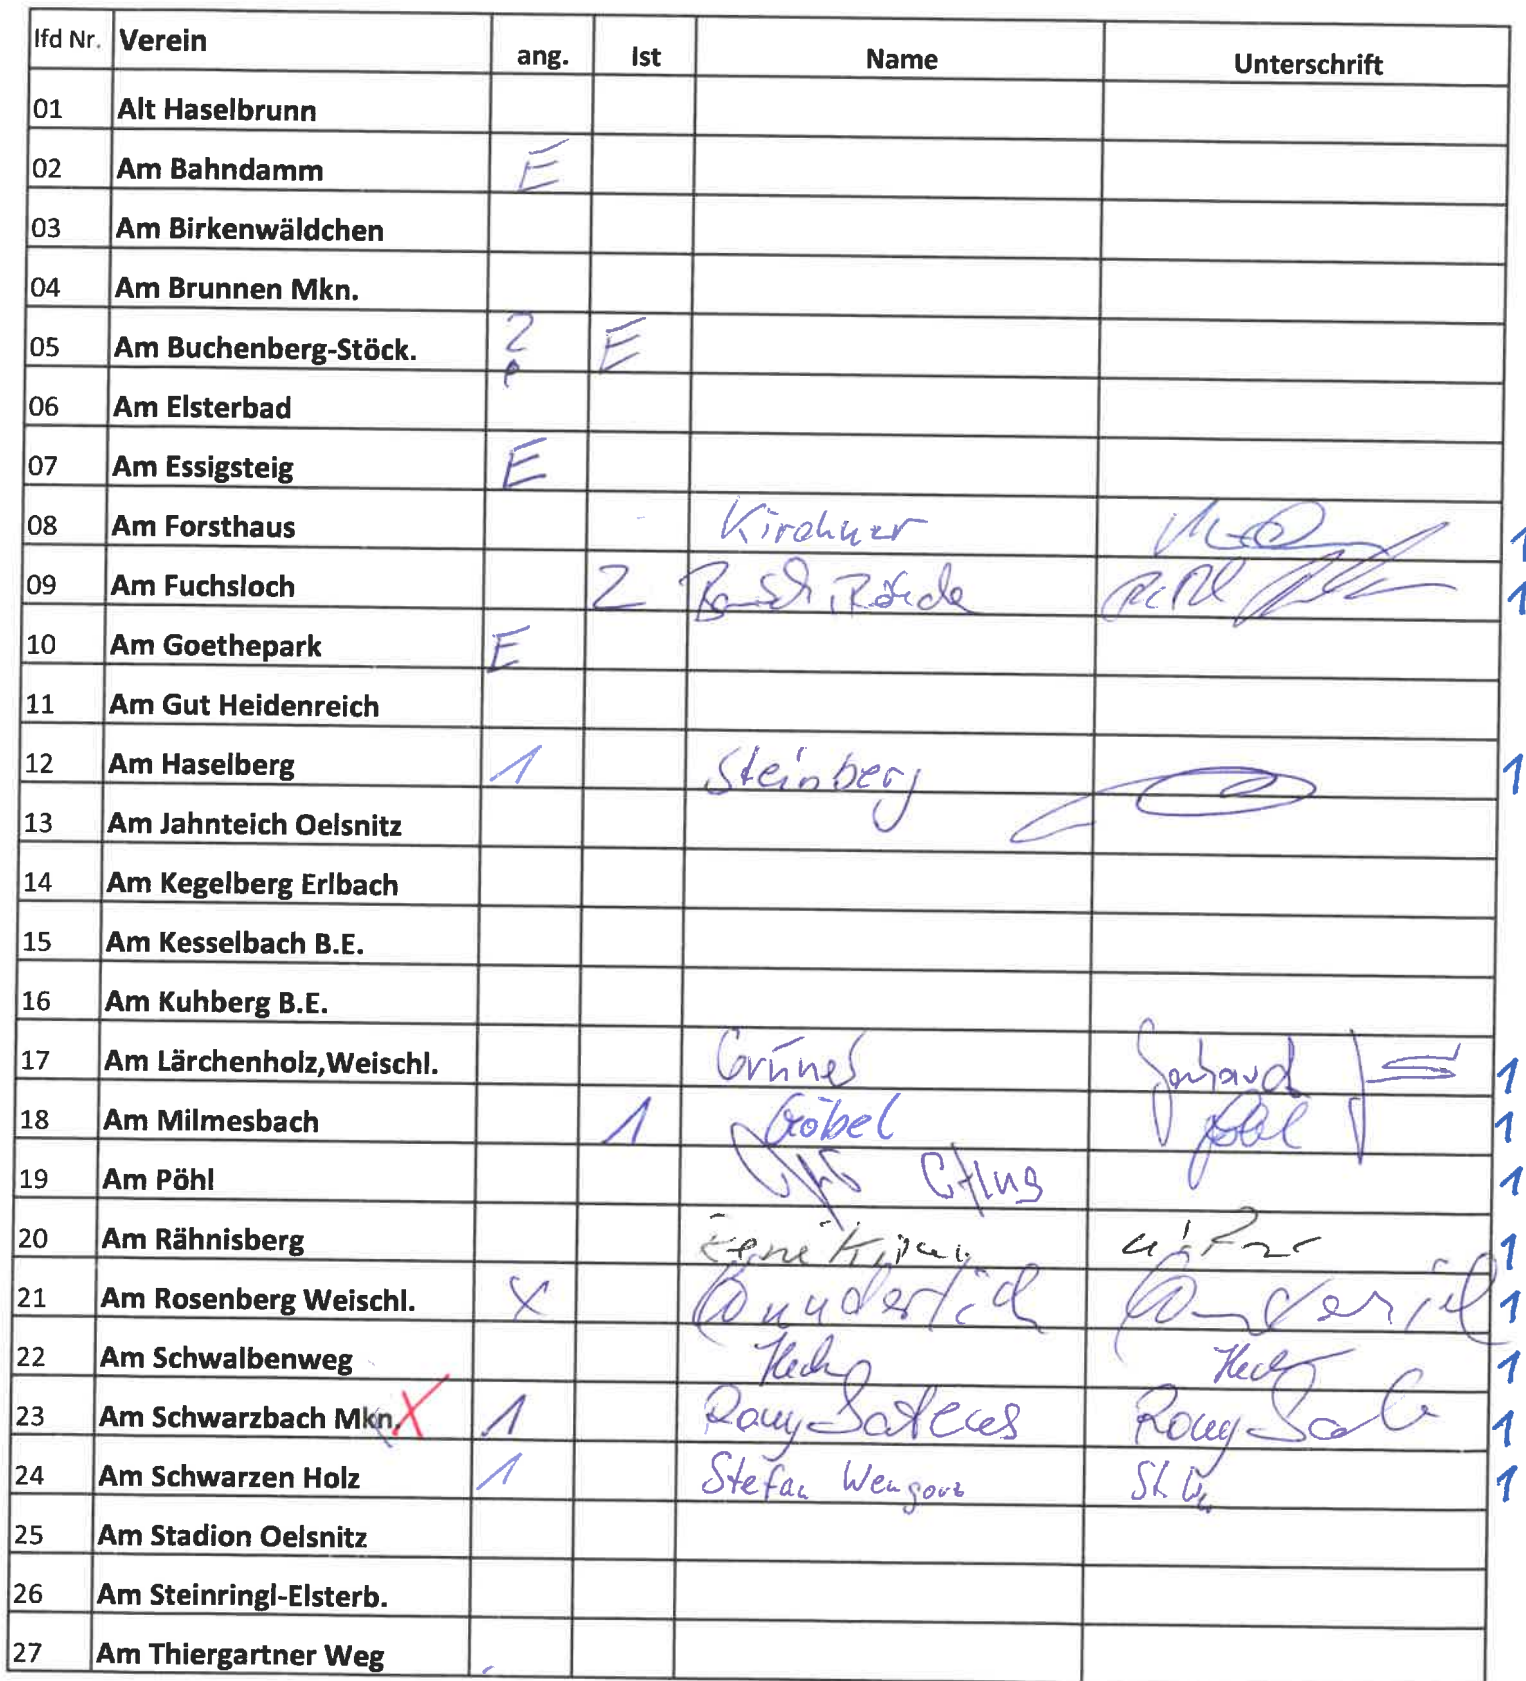 lfd Nr. Verein ang. Ist Name Unterschrift
01 Alt Haselbrunn
02 Am Bahndamm E
03 Am Birkenwäldchen
04 Am Brunnen Mkn.
05 Am Buchenberg-Stöck. 2 E
06 Am Elsterbad
07 Am Essigsteig E
08 Am Forsthaus Kirchner 1
09 Am Fuchsloch 2 1
10 Am Goethepark E
11 Am Gut Heidenreich
12 Am Haselberg 1 Steinberg 1
13 Am Jahnteich Oelsnitz
14 Am Kegelberg Erlbach
15 Am Kesselbach B.E.
16 Am Kuhberg B.E.
17 Am Lärchenholz,Weischl. Grünes 1
18 Am Milmesbach 1 Göbel 1
19 Am Pöhl 1
20 Am Rähnisberg 1
21 Am Rosenberg Weischl. X Wunderlich Wunderlich 1
22 Am Schwalbenweg 1
23 Am Schwarzbach Mkn. X 1 Romy Romy 1
24 Am Schwarzen Holz 1 Stefan 1
25 Am Stadion Oelsnitz
26 Am Steinringl-Elsterb.
27 Am Thiergartner Weg